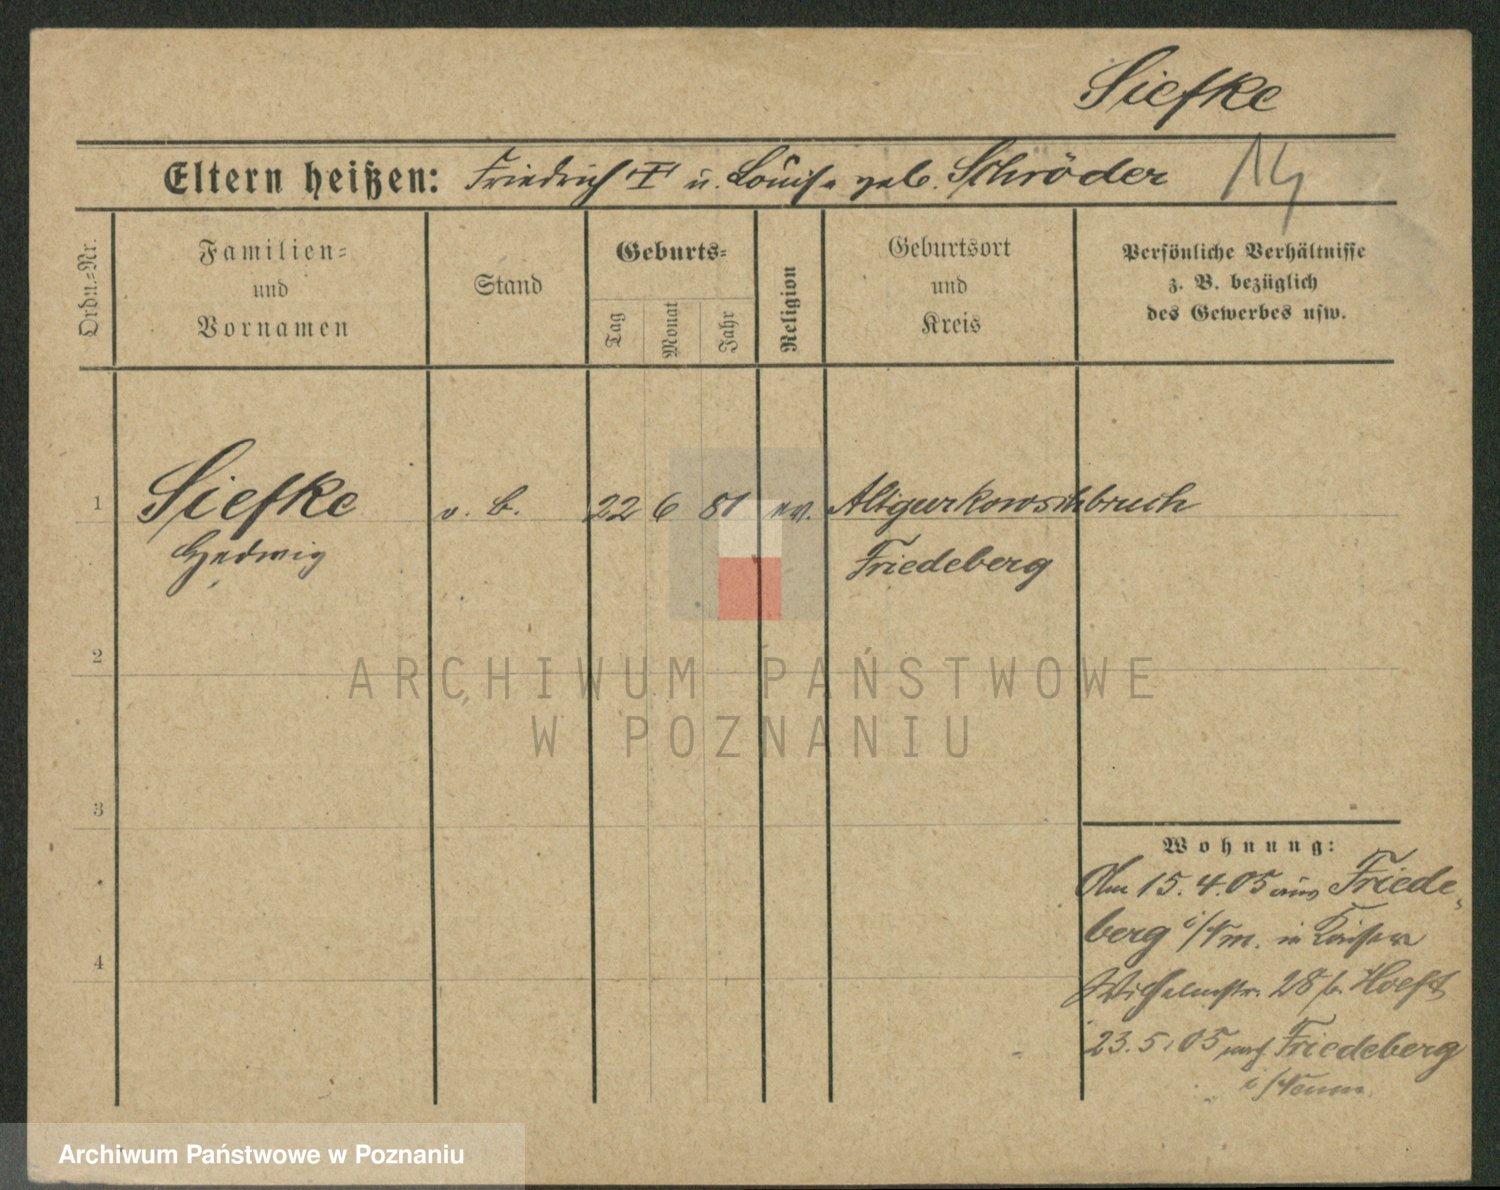 Siefke
Eltern heißen: Friedrich † u. Louise geb. Schröder
14
Ordn.=Nr.
Familien=
und
Vornamen
Stand
Geburts=
Tag
Monat
Jahr
Religion
Geburtsort
und
Kreis
Persönliche Verhältnisse
z. B. bezüglich
des Gewerbes usw.
1 Siefke o. b. 22 6 81 ev. Altgurkowschbruch
Hedwig Friedeberg
2
3
4
Wohnung:
Am 15.4.05 aus Friede-
berg i/Nm. in Kaiser
Wilhelmstr. 28 b. Hoeft
23.5.05 nach Friedeberg
i/Neum.
ARCHIWUM PAŃSTWOWE
W POZNANIU
Archiwum Państwowe w Poznaniu